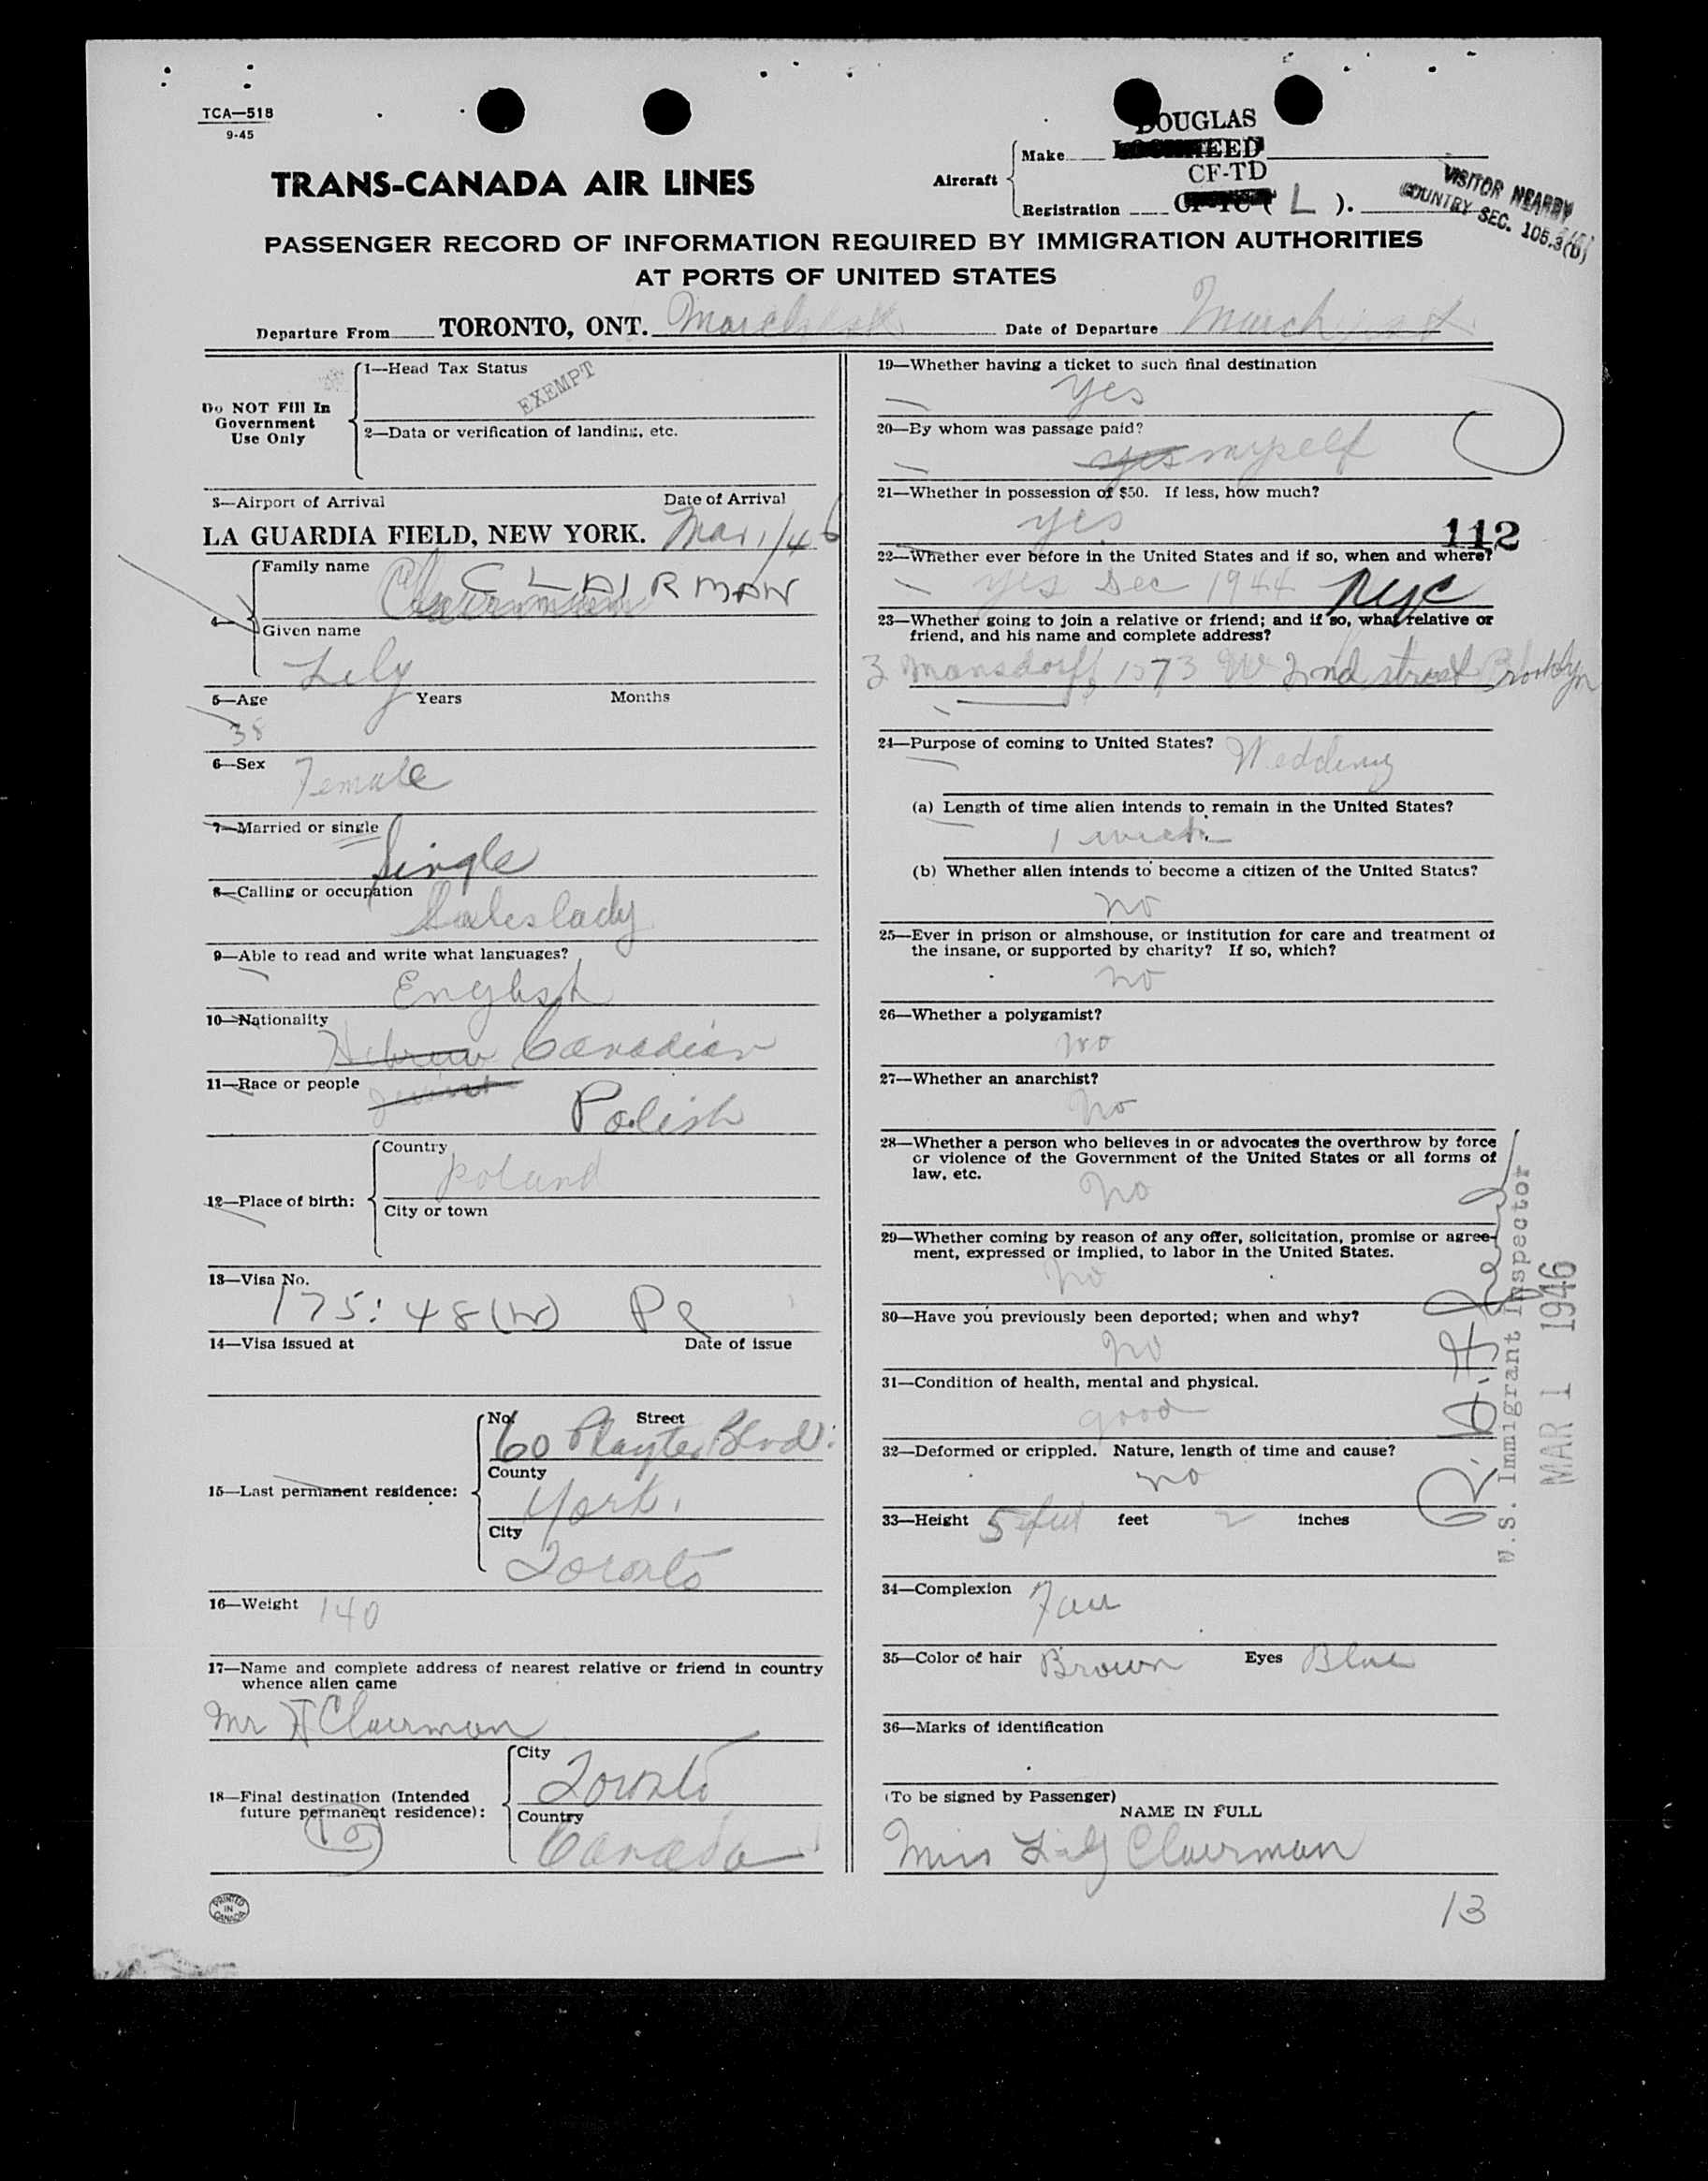 TCA—518
9-45
TRANS-CANADA AIR LINES
Aircraft
Make
DOUGLAS
CF-TD
Registration
( L ).
VISITOR NEARBY
COUNTRY SEC. 105.3(b)
PASSENGER RECORD OF INFORMATION REQUIRED BY IMMIGRATION AUTHORITIES
AT PORTS OF UNITED STATES
Departure From TORONTO, ONT. March 1st Date of Departure March 1st
Do NOT Fill In
Government
Use Only
1—Head Tax Status
EXEMPT
2—Data or verification of landing, etc.
3—Airport of Arrival Date of Arrival
LA GUARDIA FIELD, NEW YORK. Mar 1/46
4—
Family name
CLAIRMAN
Given name
Lily
5—Age Years Months
38
6—Sex Female
7—Married or single
Single
8—Calling or occupation
Saleslady
9—Able to read and write what languages?
English
10—Nationality
Hebrew Canadian
11—Race or people
Polish
12—Place of birth:
Country
Poland
City or town
13—Visa No.
175:48(W) PR
14—Visa issued at Date of issue
15—Last permanent residence:
No. Street
60 Playter Blvd.
County
York.
City
Toronto
16—Weight 140
17—Name and complete address of nearest relative or friend in country
whence alien came
Mr H Clairman
18—Final destination (Intended
future permanent residence):
City
Toronto
Country
Canada
PRINTED
IN
CANADA
19—Whether having a ticket to such final destination
yes
20—By whom was passage paid?
yes myself
21—Whether in possession of $50. If less, how much?
yes
112
22—Whether ever before in the United States and if so, when and where?
yes Dec 1944 NYC
23—Whether going to join a relative or friend; and if so, what relative or
friend, and his name and complete address?
Mansdorff, 1573 W 2nd street Brooklyn
24—Purpose of coming to United States? Wedding
(a) Length of time alien intends to remain in the United States?
1 week
(b) Whether alien intends to become a citizen of the United States?
no
25—Ever in prison or almshouse, or institution for care and treatment of
the insane, or supported by charity? If so, which?
no
26—Whether a polygamist?
no
27—Whether an anarchist?
no
28—Whether a person who believes in or advocates the overthrow by force
or violence of the Government of the United States or all forms of
law, etc.
no
29—Whether coming by reason of any offer, solicitation, promise or agree-
ment, expressed or implied, to labor in the United States.
no
30—Have you previously been deported; when and why?
no
31—Condition of health, mental and physical.
good
32—Deformed or crippled. Nature, length of time and cause?
no
33—Height 5 feet 2 inches
34—Complexion Fair
35—Color of hair Brown Eyes Blue
36—Marks of identification
(To be signed by Passenger)
NAME IN FULL
Miss Lily Clairman
13
U.S. Immigrant Inspector
MAR 1 1946